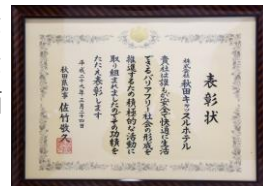 表彰状
株式会社 秋田キャッスルホテル
貴社は誰もが安全で快適に生活
できるバリアフリー社会の形成を
推進するための積極的な活動に
取り組まれましたのでその功績を
たたえ表彰します
平成二十九年二月二十四日
秋田県知事 佐竹敬久